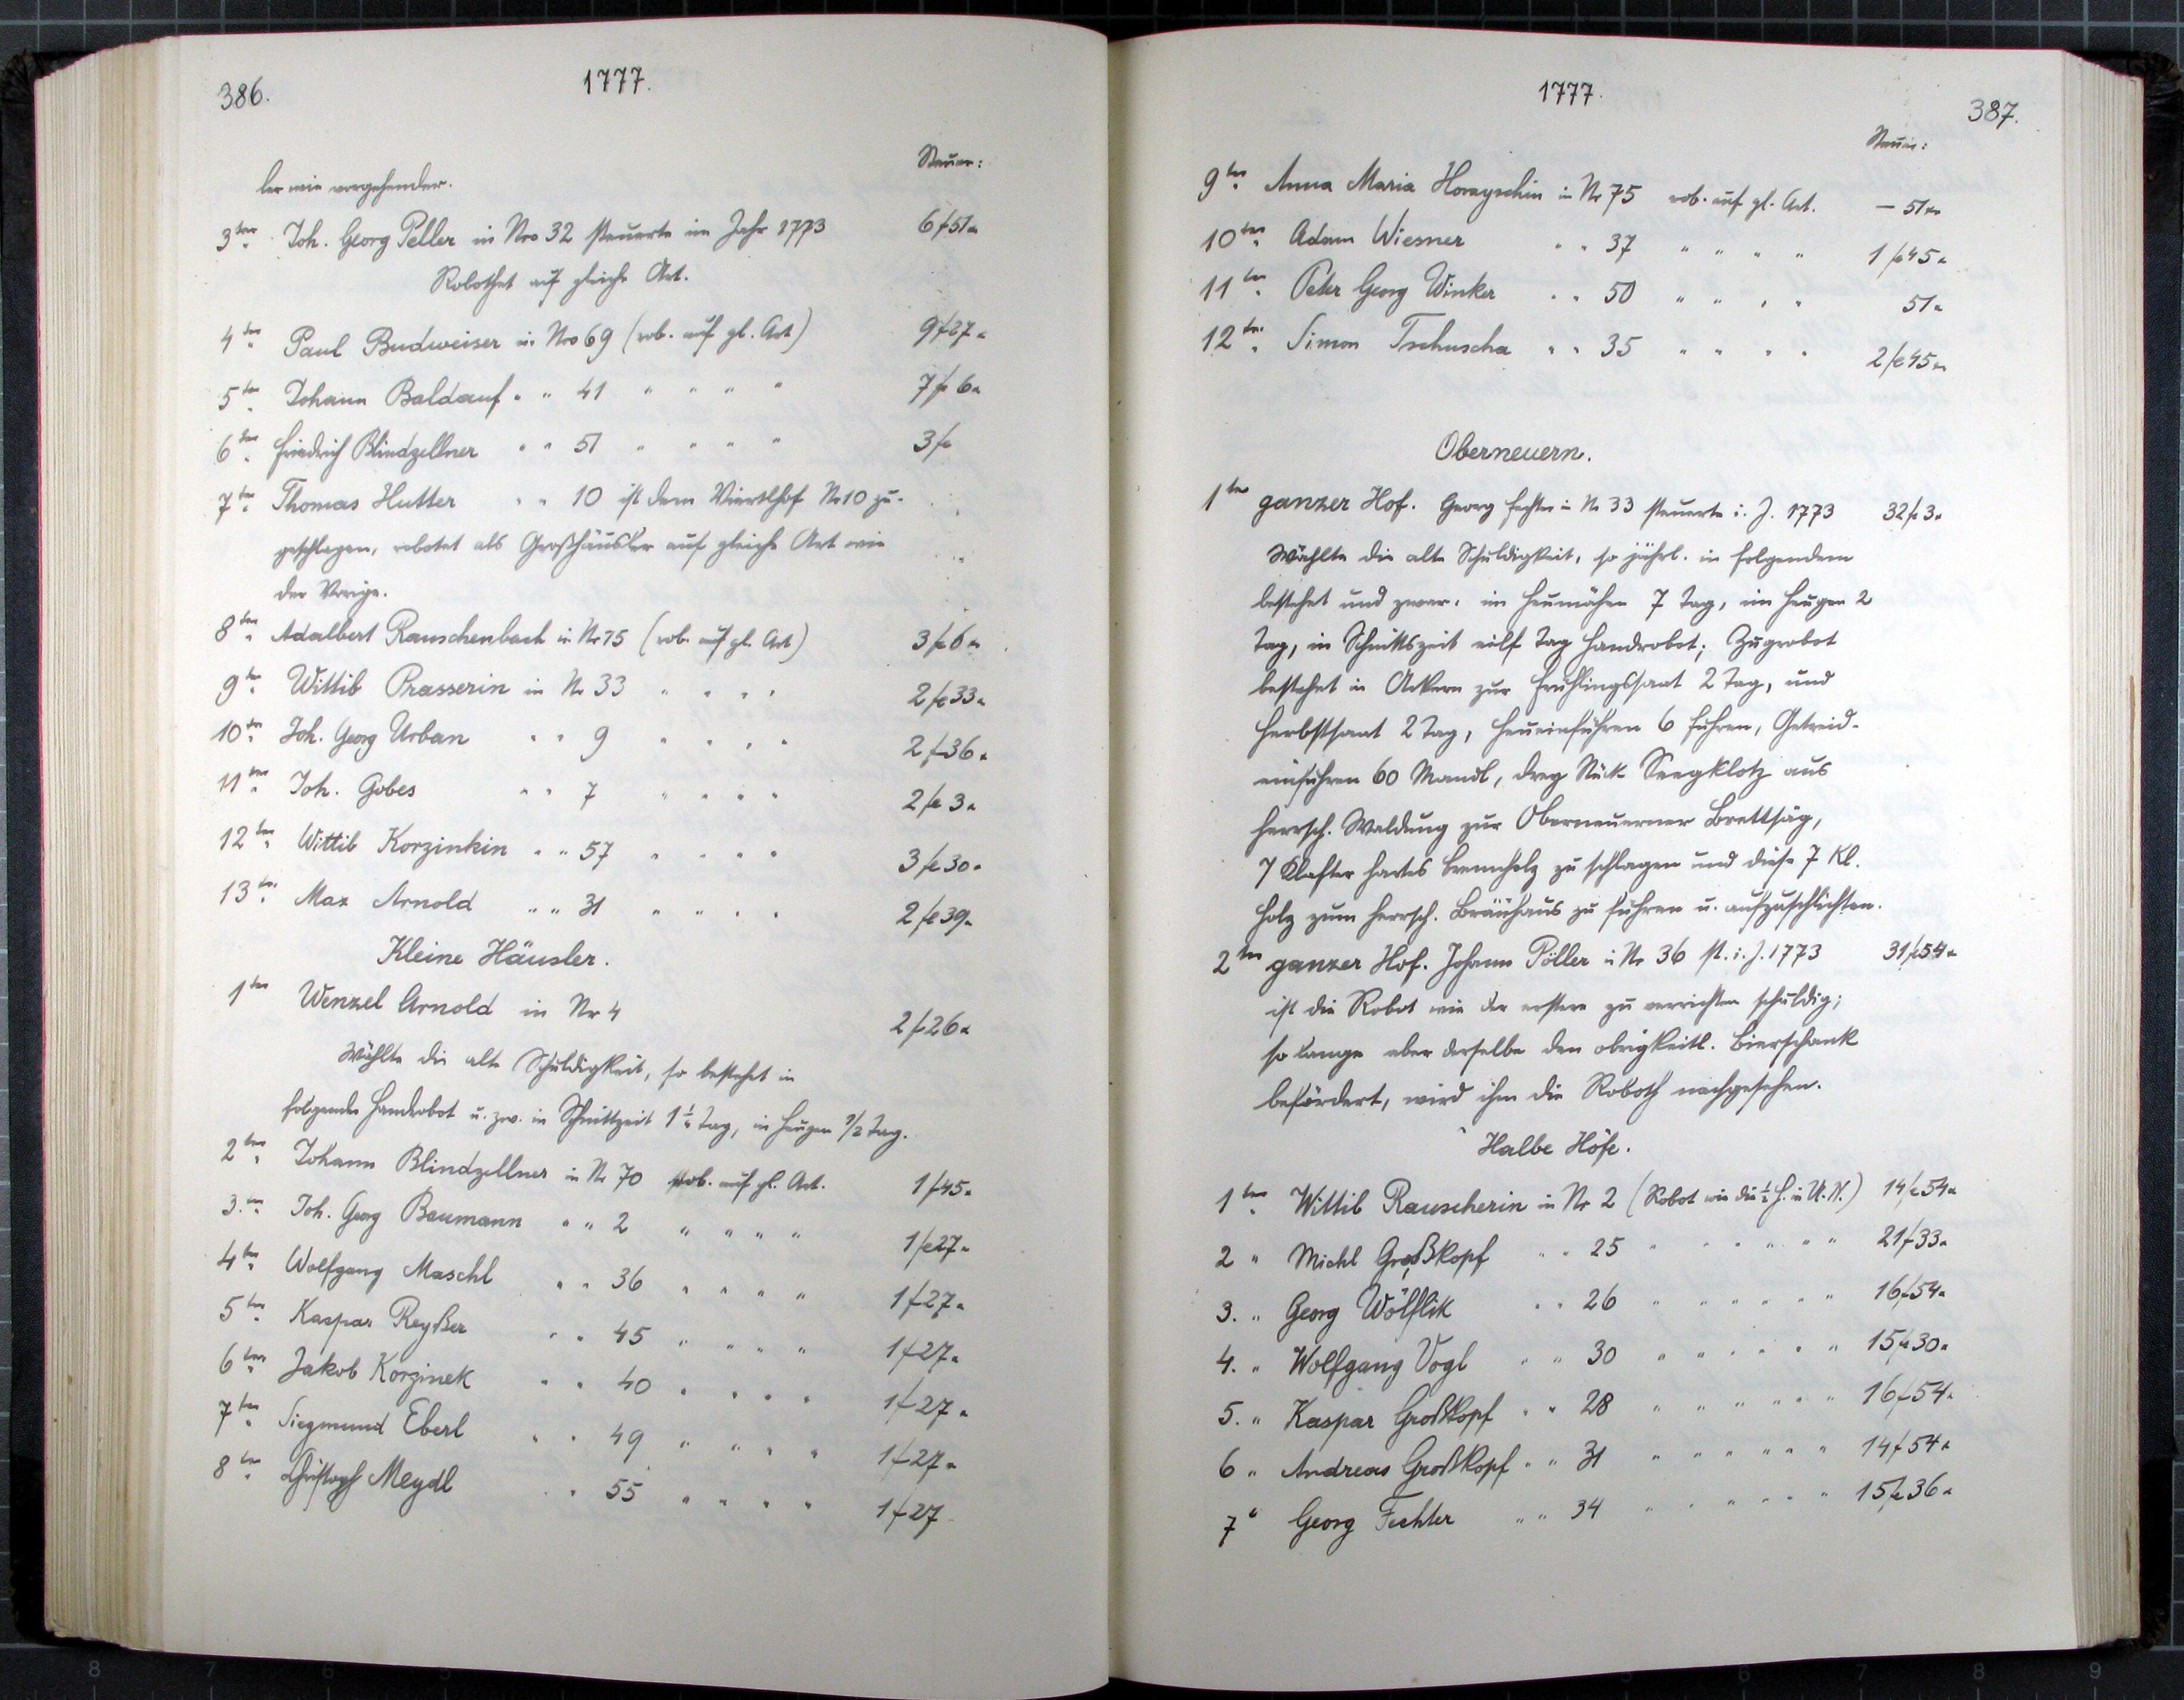 386.
1777.
Steuer:
ler wie vorgehender.
3ter Joh. Georg Peller in Nro 32 steuerte im Jahr 1773 6 f 51 x
Robothet auf gleiche Art.
4ter Paul Budweiser in Nro 69 (rob. auf gl. Art) 9 f 27 x
5ter Johann Baldauf " " 41 " " " " 7 f 6 x
6ter Friedrich Blindzellner " " 51 " " " " 3 f
7ter Thomas Hutter " " 10 ist dem Viertlhof Nr 10 zu-
geschlagen, robotet als Großhäusler auf gleiche Art wie
der Vorige.
8ter Adalbert Rauschenbach in Nr 75 (rob. auf gl. Art) 3 f 6 x
9te Wittib Prasserin in Nr 33 " " " " 2 f 33 x
10ter Joh. Georg Urban " " 9 " " " " 2 f 36 x
11ter Joh. Gobes " " 7 " " " " 2 f 3 x
12ter Wittib Korzinkin " " 57 " " " " 3 f 30 x
13ter Max Arnold " " 31 " " " " 2 f 39 x
Kleine Häusler.
1ter Wenzel Arnold in Nr 4 2 f 26 x
Wählte die alte Schuldigkeit, so bestehet in
folgende Handrobot u. zw. in Schnittzeit 1 ½ Tag, in Heugen ½ Tag.
2ter Johann Blindzellner in Nr 70 rob. auf gl. Art. 1 f 45 x
3.ter Joh. Georg Baumann " " 2 " " " " 1 f 27 x
4ter Wolfgang Maschl " " 36 " " " " 1 f 27 x
5ter Kaspar Reyßer " " 45 " " " " 1 f 27 x
6ter Jakob Korzinek " " 40 " " " " 1 f 27 x
7ter Siegmund Eberl " " 49 " " " " 1 f 27 x
8ter Christoph Meydl " " 55 " " " " 1 f 27
1777.
387.
Steuer:
9ter Anna Maria Horayschin in Nr 75 rob. auf gl. Art. — 51 x
10ter Adam Wiesner " " 37 " " " " 1 f 45 x
11ter Peter Georg Winker " " 50 " " " " 51 x
12ter Simon Tschuscha " " 35 " " " " 2 f 45 x
Oberneuern.
1ter ganzer Hof. Georg Fechter in Nr 33 steuerte i. J. 1773 32 f 3 x
Wählte die alte Schuldigkeit, so jährl. in folgendem
bestehet und zwar: im Heumähen 7 Tag, im Heugen 2
Tag, in Schnittszeit eilf Tag Handrobot; Zugrobot
bestehet in Ackern zur Frühlingssaat 2 Tag, und
Herbstsaat 2 Tag, Heueinführen 6 Fuhren, Getreid-
einführen 60 Mandl, drey Stück Seegklotz aus
herrsch. Waldung zur Oberneuerner Brettsäg,
7 Klafter hartes Brennholz zu schlagen und diese 7 Kl.
Holz zum herrsch. Bräuhaus zu führen u. aufzuschlichten.
2ter ganzer Hof. Johann Pöller in Nr 36 st. i. J. 1773 31 f 54 x
ist die Robot wie der erstere zu verrichten schuldig;
so lange aber derselbe den obrigkeitl. Bierschank
befördert, wird ihm die Roboth nachgesehen.
Halbe Höfe.
1ter Wittib Rauscherin in Nr 2 (Robot wie die ½ H. in U. N.) 14 f 54 x
2 " Michl Großkopf " " 25 " " " " " " 21 f 33 x
3. " Georg Wölflik " " 26 " " " " " " 16 f 54 x
4. " Wolfgang Vogl " " 30 " " " " " " 15 f 30 x
5. " Kaspar Großkopf " " 28 " " " " " " 16 f 54 x
6 " Andreas Großkopf " " 31 " " " " " " 14 f 54 x
7 " Georg Fechter " " 34 " " " " " " 15 f 36 x
8 7 6 5 6 7 8 9